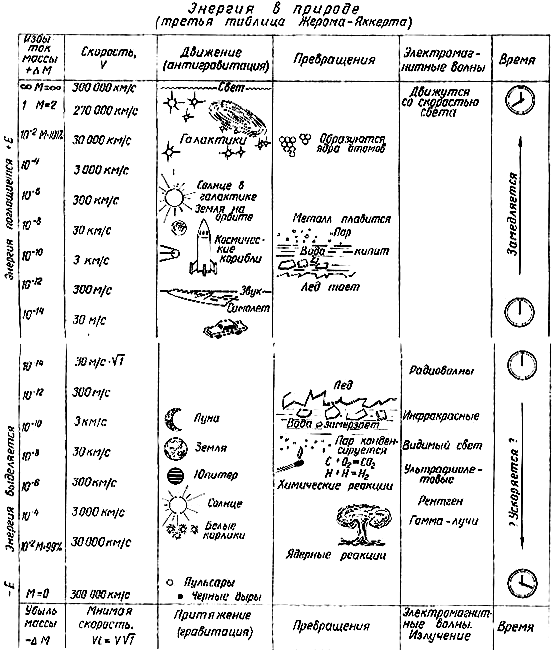 Энергия в природе
(третья таблица Жерома-Яккерта)
Избы
ток
массы
+ΔM
Скорость,
V
Движение
(антигравитация)
Превращения
Электромаг-
нитные волны
Время
∞ M=∞
300 000 км/с
Свет
Движутся
со скоростью
света
1 M=2
270 000 км/с
10⁻² M=101%
30 000 км/с
Галактики
Образуются
ядра атомов
10⁻⁴
3 000 км/с
10⁻⁶
300 км/с
Солнце в
галактике
Земля на
орбите
10⁻⁸
30 км/с
Металл плавится
Пар
10⁻¹⁰
3 км/с
Космичес-
кие
корабли
Вода кипит
10⁻¹²
300 м/с
Звук
Лед тает
Самолет
10⁻¹⁴
30 м/с
Энергия поглощается +E
Замедляется
10⁻¹⁴
30 м/с·√1
Радиоволны
10⁻¹²
300 м/с
Лед
10⁻¹⁰
3 км/с
Луна
Вода замерзает
Инфракрасные
10⁻⁸
30 км/с
Земля
Пар конден-
сируется
C + O₂ = CO₂
H + H = H₂
Химические реакции
Видимый свет
10⁻⁶
300 км/с
Юпитер
Ультрафиоле-
товые
10⁻⁴
3 000 км/с
Солнце
Рентген
10⁻² M=99%
30 000 км/с
Белые
карлики
Гамма-лучи
Ядерные реакции
Пульсары
Черные дыры
M=0
300 000 км/с
Энергия выделяется -E
? Ускоряется ?
Убыль
массы
-ΔM
Мнимая
скорость.
Vi = V√1
Притяжение
(гравитация)
Превращения
Электромагнит-
ные волны.
Излучение
Время